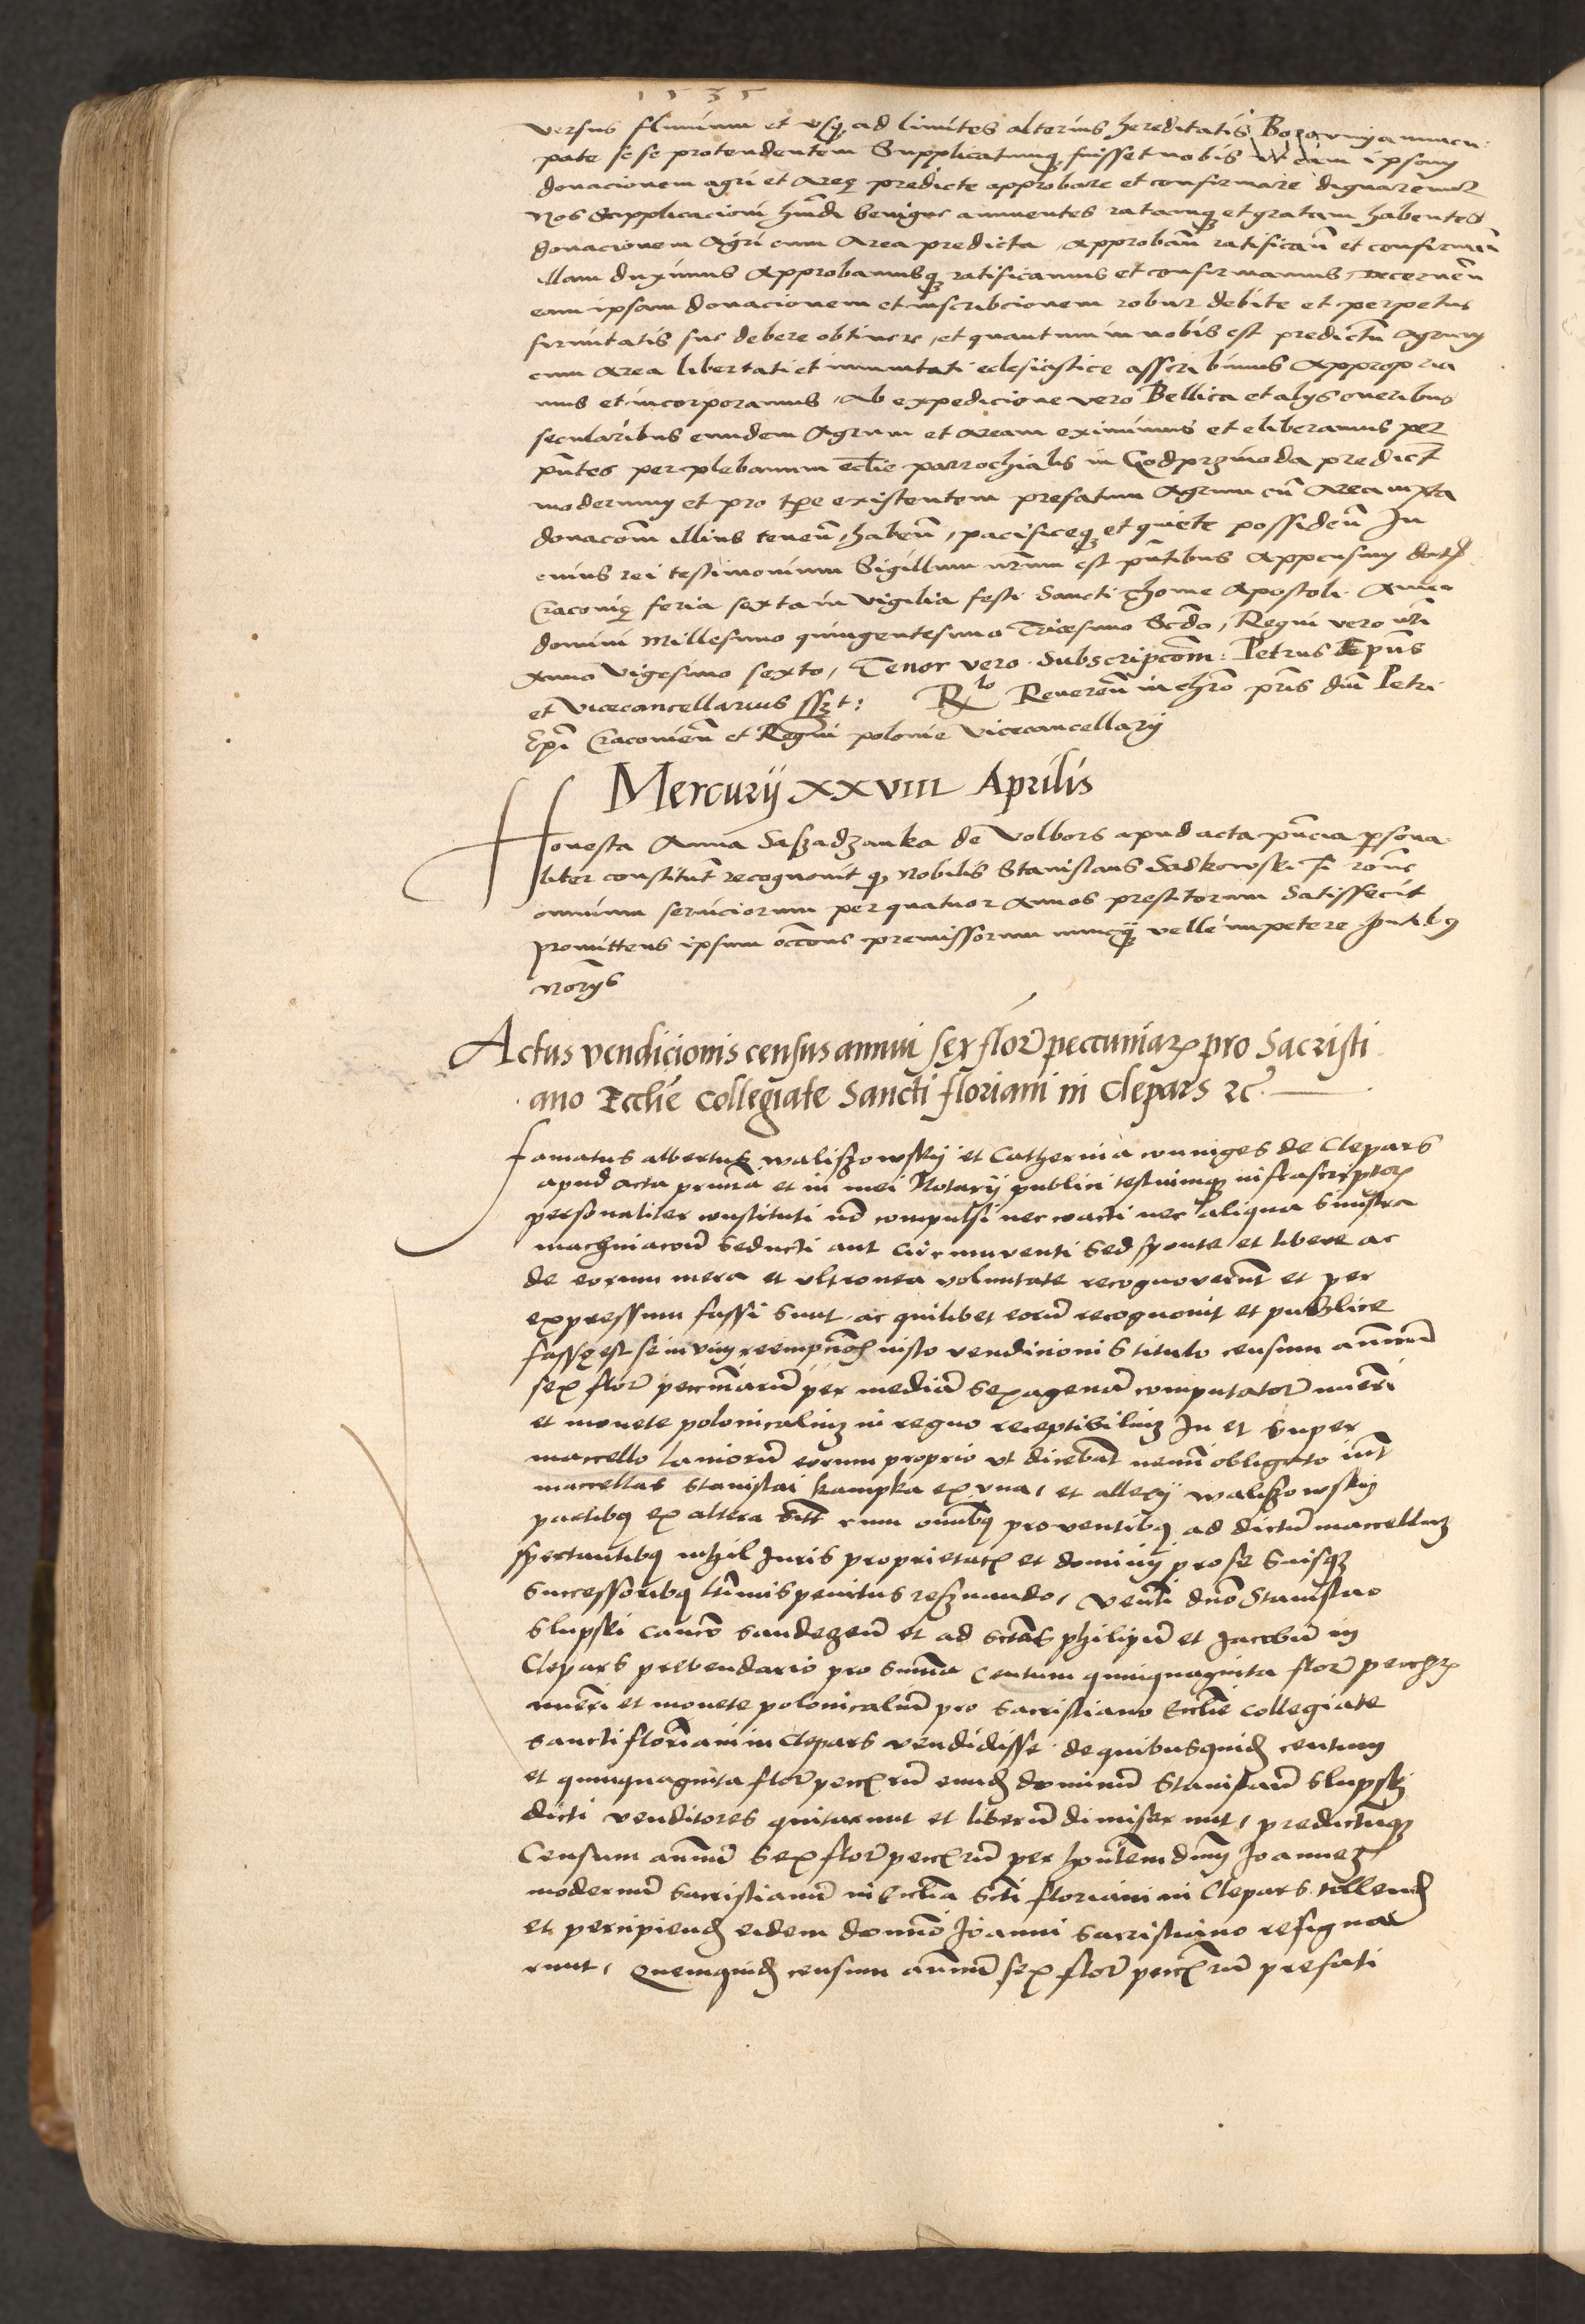 1535
versus flumen et usq ad limites alterius hereditatis nuncu
pate se se protendentem Supplicatumq fuisset nobis ut eam ipsam
donacionem agri et areę predicte approbare et confirmare dignaremur
Nos Supplicacioni hmõi benigne annuentes ratamq et gratam habentes
donacionem Agri cum Area predicta, approbañ ratificañ et confirmañ
illam duximus Approbamusq ratificamus et confirmamus, decerneñ
eam ipsam donacionem et inscribcionem robur debite et perpetue
firmitatis sue debere obtinere, et quantum in nobis est predictũ Agrum
cum Area libertati et immunitati eclesiastice asscribimus Appropria
mus et incorporamus, Ab expedicione vero Bellica et alys oneribus
secularibus eundem Agrum et aream eximimus et eliberamus per
pñtes per plebanum ecclie parrochialis in predict
modernum et pro tpe existentem prefatum Agrum cũ Area iuxta
donacõm illius teneñ, habeñ, pacificeq et quiete possideñ In
cuius rei testimonium Sigillum nrum est pñtibus Appensum dat
Cracovię feria sexta in vigilia festi Sancti Thome Apostoli Anno
domini Millesimo quingentesimo Tricesimo Scdo, Regni vero nri
Anno vigesimo sexto, Tenor vero Subscripcõm: Petrus Epũs
et Vicecancellarius sszt: Rlo Revereñ in chro pris dni Petri
Epi Cracovieñ et Regni polonie Vicecancellarij
Mercurij XXVIII Aprilis
Honesta Anna Saszadzanka de Volbors apud acta pñcia persona
liter constitut recognovit q Nobilis Stanislaus Sadkowski si rõne
omnium serviciorum per quatuor Annos prestitorum Satisfecit
promittens ipsum occõne premissorum nuncq velle impetere pntibus
norijs
Actus vendicionis census annui sex flor pecuniar pro Sacristi
ano Ecclie collegiate Sancti floriani in Clepars zc
famatus albertus waliszowskij et Catherina coniuges de Clepars
apud acta pñtia et in mei Notarij publici testiumq infrascriptor
personaliter constituti nõ compulsi nec coacti nec aliqua sinistra
machinacoñ seducti aut circumventi sed sponte et libere ac
de eorum mera et ultronea voluntate recognoverunt et per
expressum fassi sunt, ac quilibet eorũ recognovit et publice
fassq est se in vim reempcõis iusto vendicionis titulo censum annuũ
sex flor pecuniarũ per mediã sexagenã computator nueri
et monete polonicaliuz in regno receptibiliuz In et super
maccello laniorũ eorum proprio ut dicebant nemi obligato inter
maccellas Stanislai kampka ex una, et allexij waliszowskij
partibq ex altera sitt cum omnibq proventibq ad dictũ maccelluz
spectantibq nihil Iuris proprietat et dominij pro se suisq
successoribq ltimis penitus reservando, Venli dno Stanislao
Slupski canco sandezeñ et ad sctos philipũ et Jacobũ in
Clepars prebendario pro summa Centum quinquaginta flor
nueri et monete polonicaliũ pro sacristiano Ecclie collegiate
sancti floriani in Clepars vendidisse de quibusquid centum
et quinquaginta flor peccrũ eund dominũ Stanislaũ Slupski
dicti venditores quitarunt et liberũ dimiserunt, predictuq
Censum annuũ sex flor peccrũ per hontem dnm Joannez
modernũ sacristianũ in Ecclia scti floriani in Clepars tollend
et percipiend eidem domino Joanni sacristiano resigna
runt, Quemquid censum annuũ sex flor peccrũ prefati